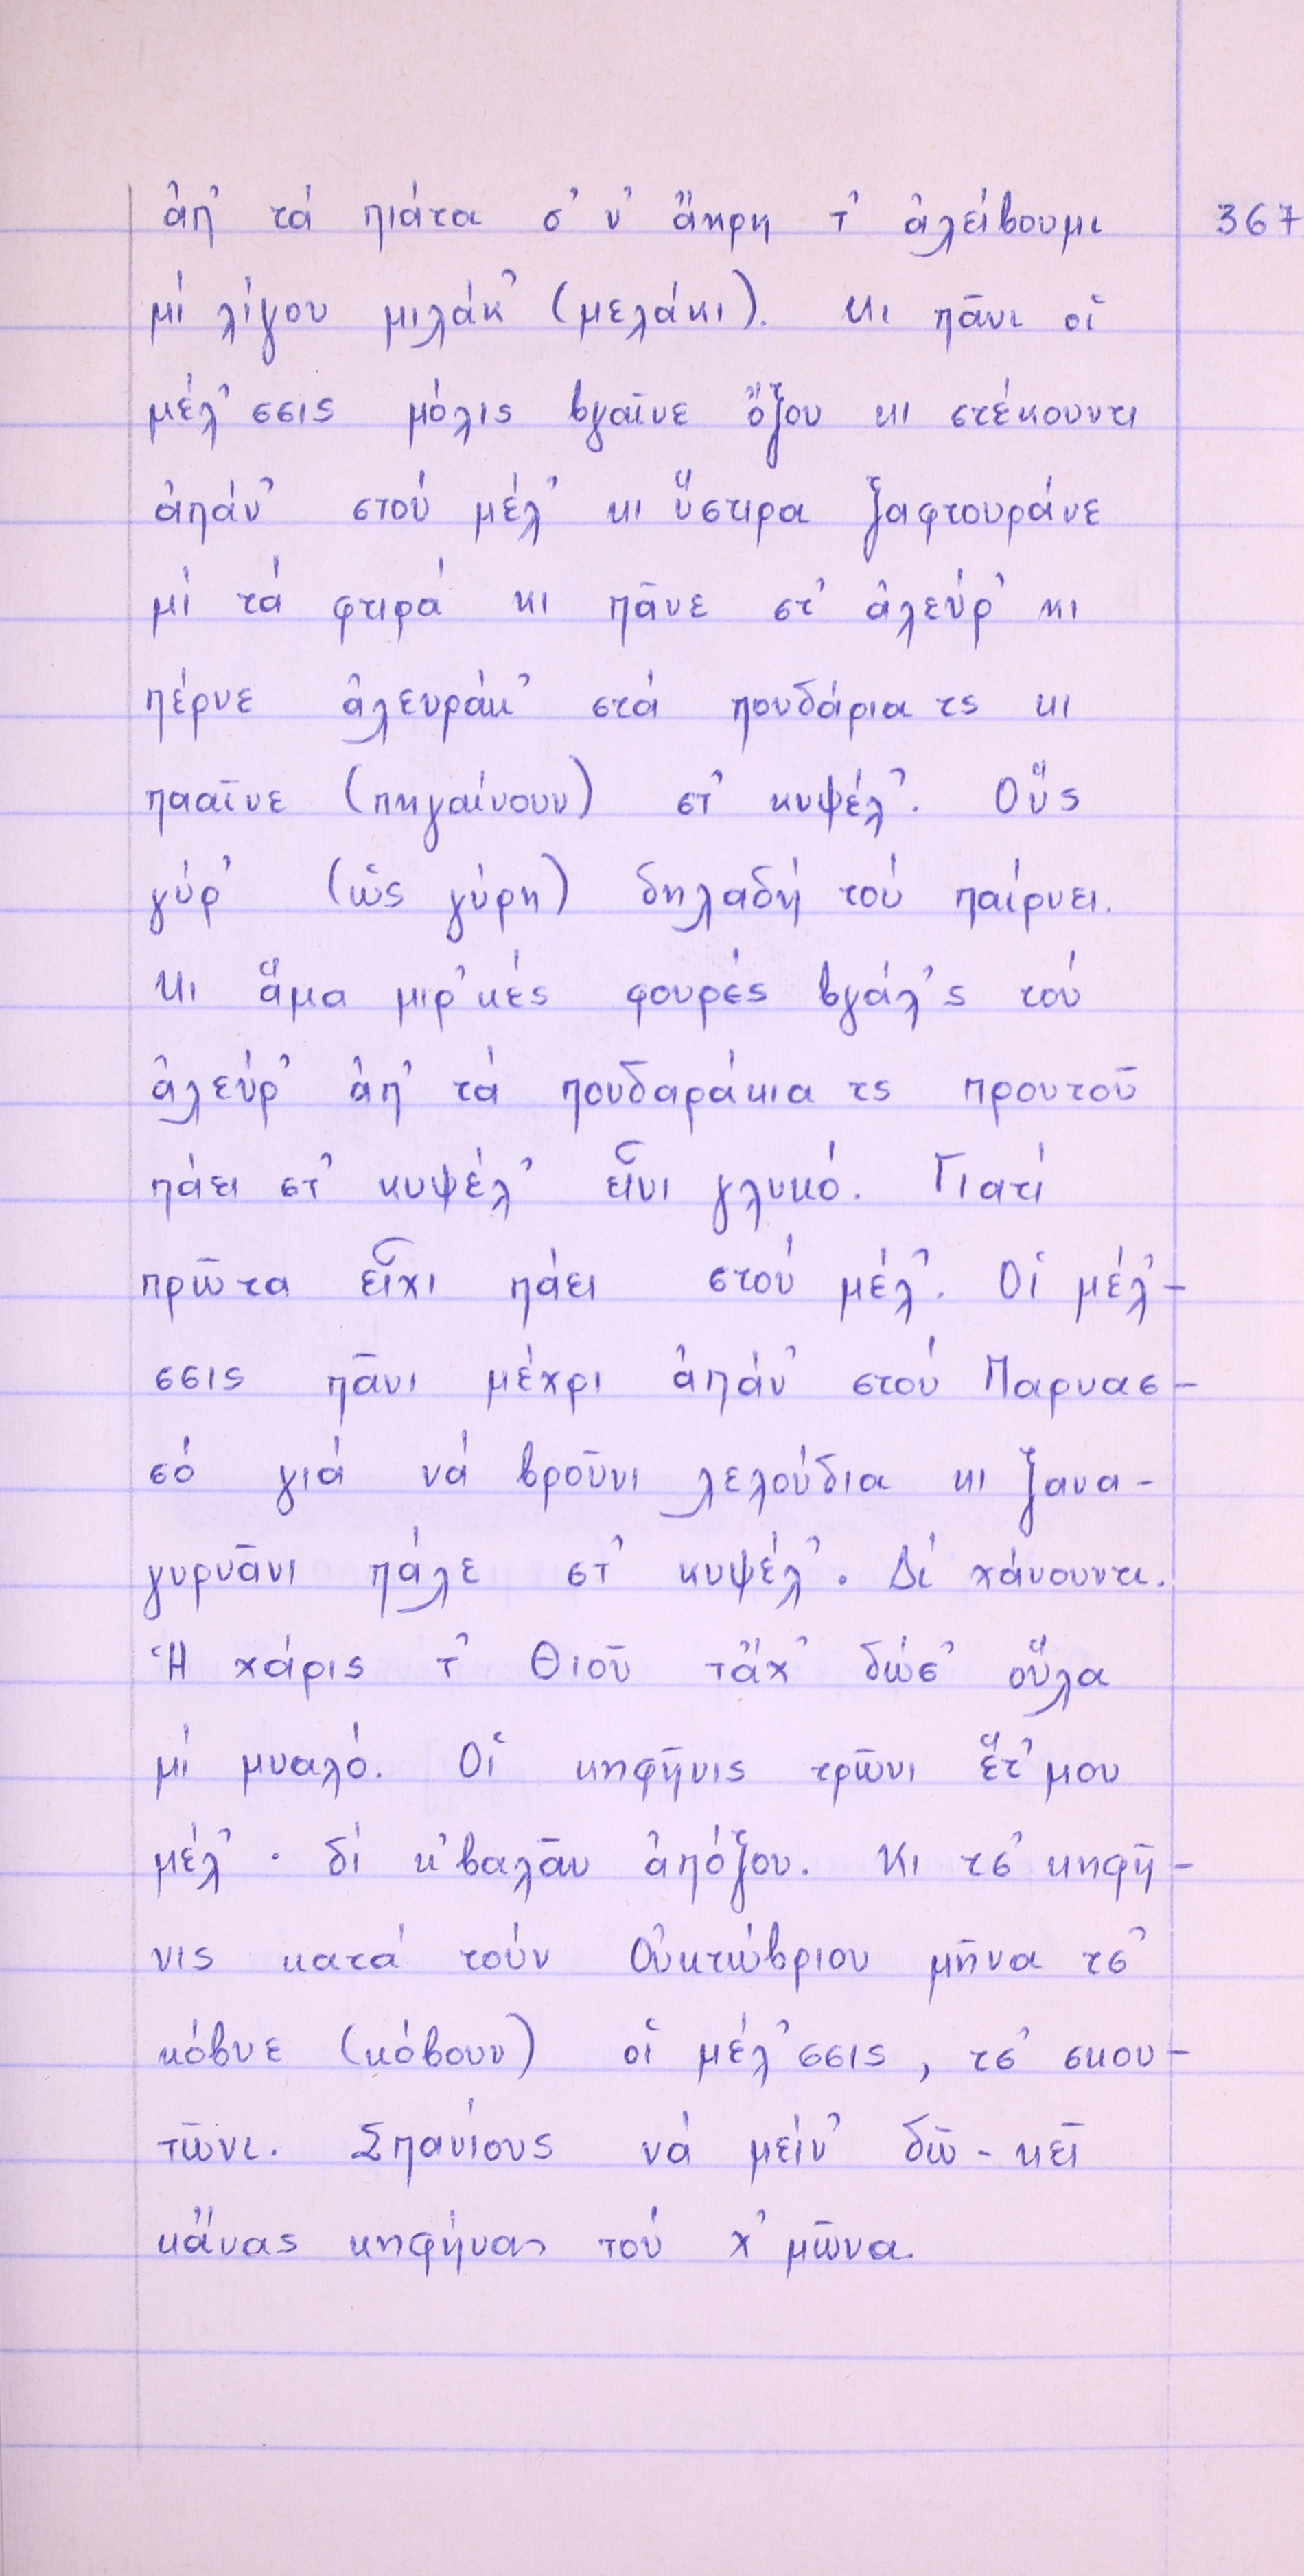 ἀπ' τά πιάτα σ' ν' ἄκρη τ' ἀλείβουμι 367
μί λίγου μιλάκ' (μελάκι). Κι πᾶνι οἱ
μέλ'σσις μόλις βγαῖνε ὄξου κι στέκουντι
ἀπάν' στού μέλ' κι ὕστιρα ξαφτουράνε
μί τά φτιρά κι πᾶνε στ' ἀλεύρ' κι
πέρνε ἀλευράκ' στά πουδάρια τς κι
πααῖνε (πηγαίνουν) στ' κυψέλ'. Οὕς
γύρ' (ὡς γύρη) δηλαδή τού παίρνει.
Κι ἅμα μιρ'κές φουρές βγάλ'ς τού
ἀλεύρ' ἀπ' τά πουδαράκια τς προυτοῦ
πάει στ' κυψέλ' εἶνι γλυκό. Γιατί
πρῶτα εἶχι πάει στού μέλ'. Οἱ μέλ'-
σσις πᾶνι μέχρι ἀπάν' στού Παρνασ-
σό γιά νά βροῦνι λελούδια κι ξανα-
γυρνᾶνι πάλε στ' κυψέλ'. Δί χάνουντι.
Ἡ χάρις τ' Θιοῦ τἄχ' δώσ' οὕλα
μί μυαλό. Οἱ κηφῆνις τρῶνι ἕτ'μου
μέλ' · δί κ'βαλᾶν ἀπόξου. Κι τσ' κηφῆ-
νις κατά τούν Οὐκτώβριου μῆνα τσ'
κόβνε (κόβουν) οἱ μέλ'σσις, τσ' σκου-
τῶνι. Σπανίους νά μείν' δῶ-κεῖ
κἄνας κηφήνας τού χ'μῶνα.